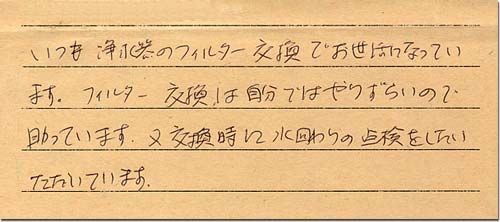 いつも浄水器のフィルター交換でお世話になってい
ます。フィルター交換は自分ではやりずらいので
助っています。又交換時に水回わりの点検をしたい
ただいています。